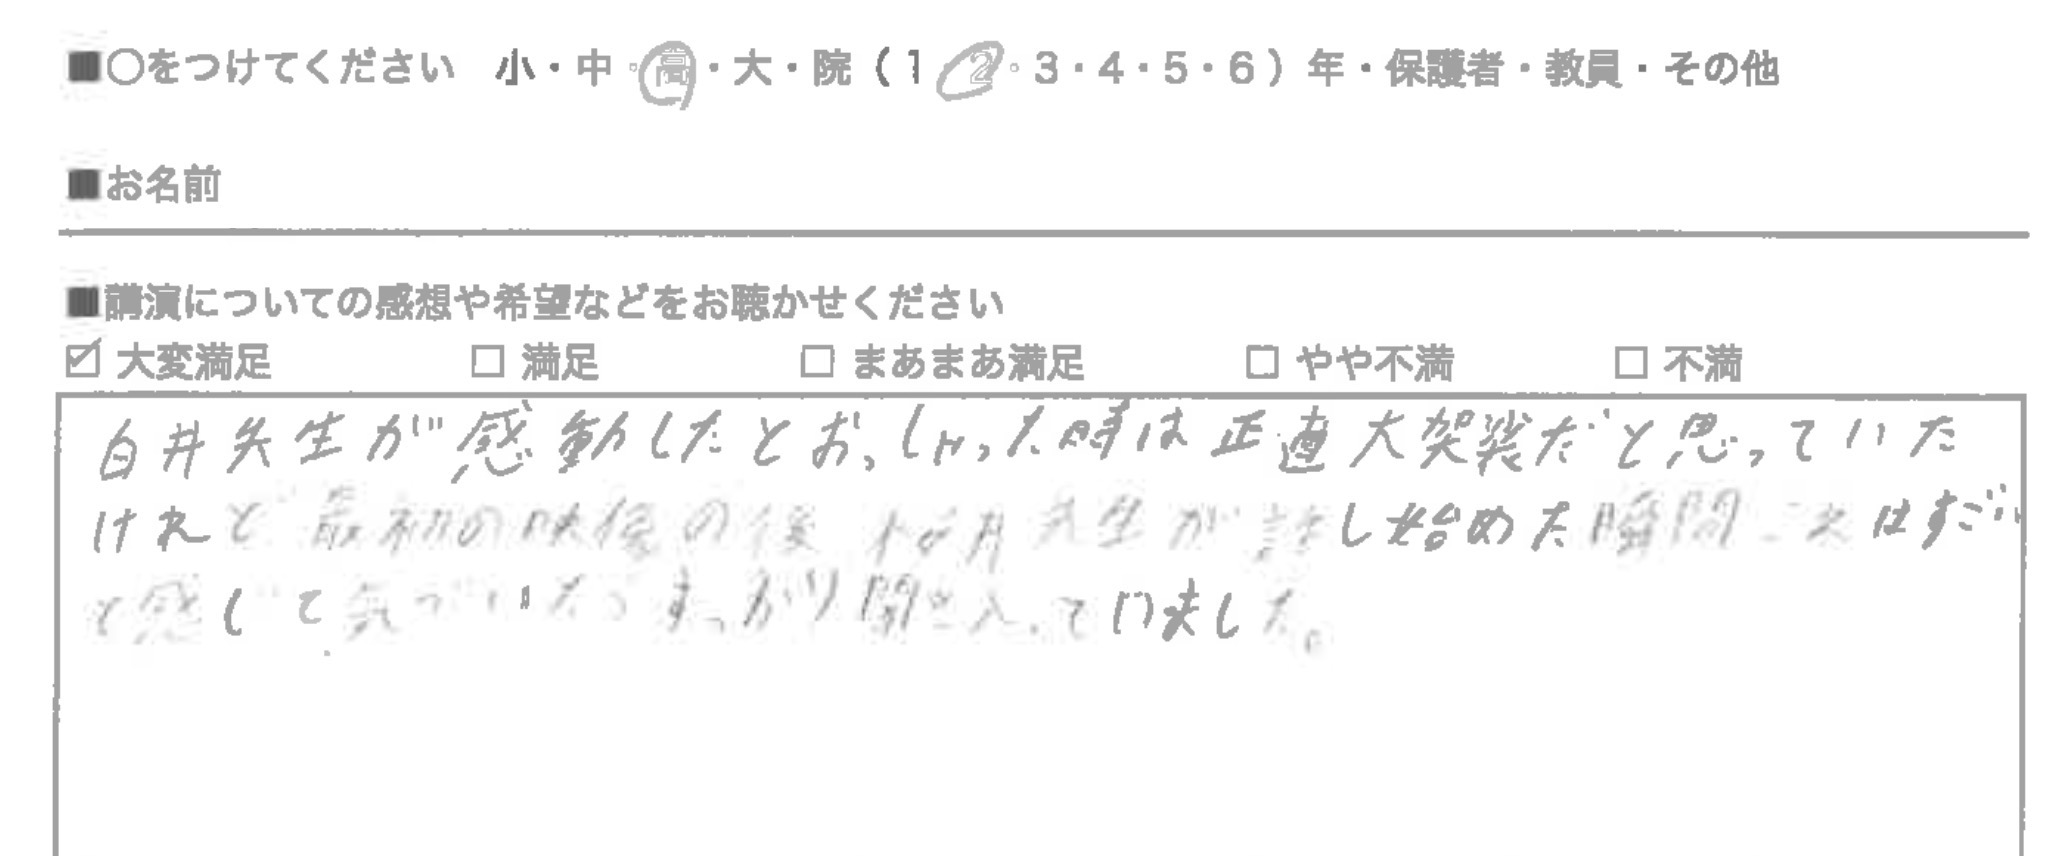 ■○をつけてください 小・中・高・大・院（1・2・3・4・5・6）年・保護者・教員・その他
■お名前
■講演についての感想や希望などをお聴かせください
☑ 大変満足 □ 満足 □ まあまあ満足 □ やや不満 □ 不満
白井先生が感動したとおっしゃった時は正直大袈裟だと思っていた
けれど最初の映像の後 先生が話し始めた瞬間これはすごい
と感じて気づいたらすっかり聞き入っていました。